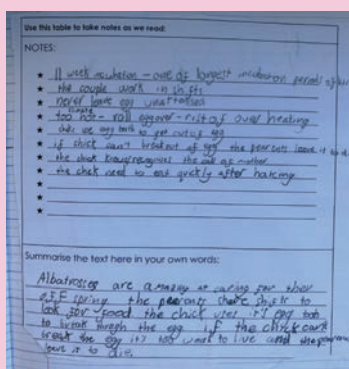 Use this table to take notes as we read:
NOTES:
★ 11 week incubation - one of longest incubation periods of
★ the couple work in shifts
★ never leave egg unattended
★ too hot - roll egg over - risk of over heating
★ chicks use egg tooth to get out of egg
★ if chick can't breakout of egg the pearents leave it to
★ the chick knows/recognises the call of mother
★ the chick need to eat quickly after
★
★
★
Summarise the text here in your own words:
Albatrosses are amazing at caring for they
off spring the pearents share shifts to
look for food the chick uses it's egg tooth
to break through the egg if the chick can't
break the egg it's too weak to live and the
leave it to die.